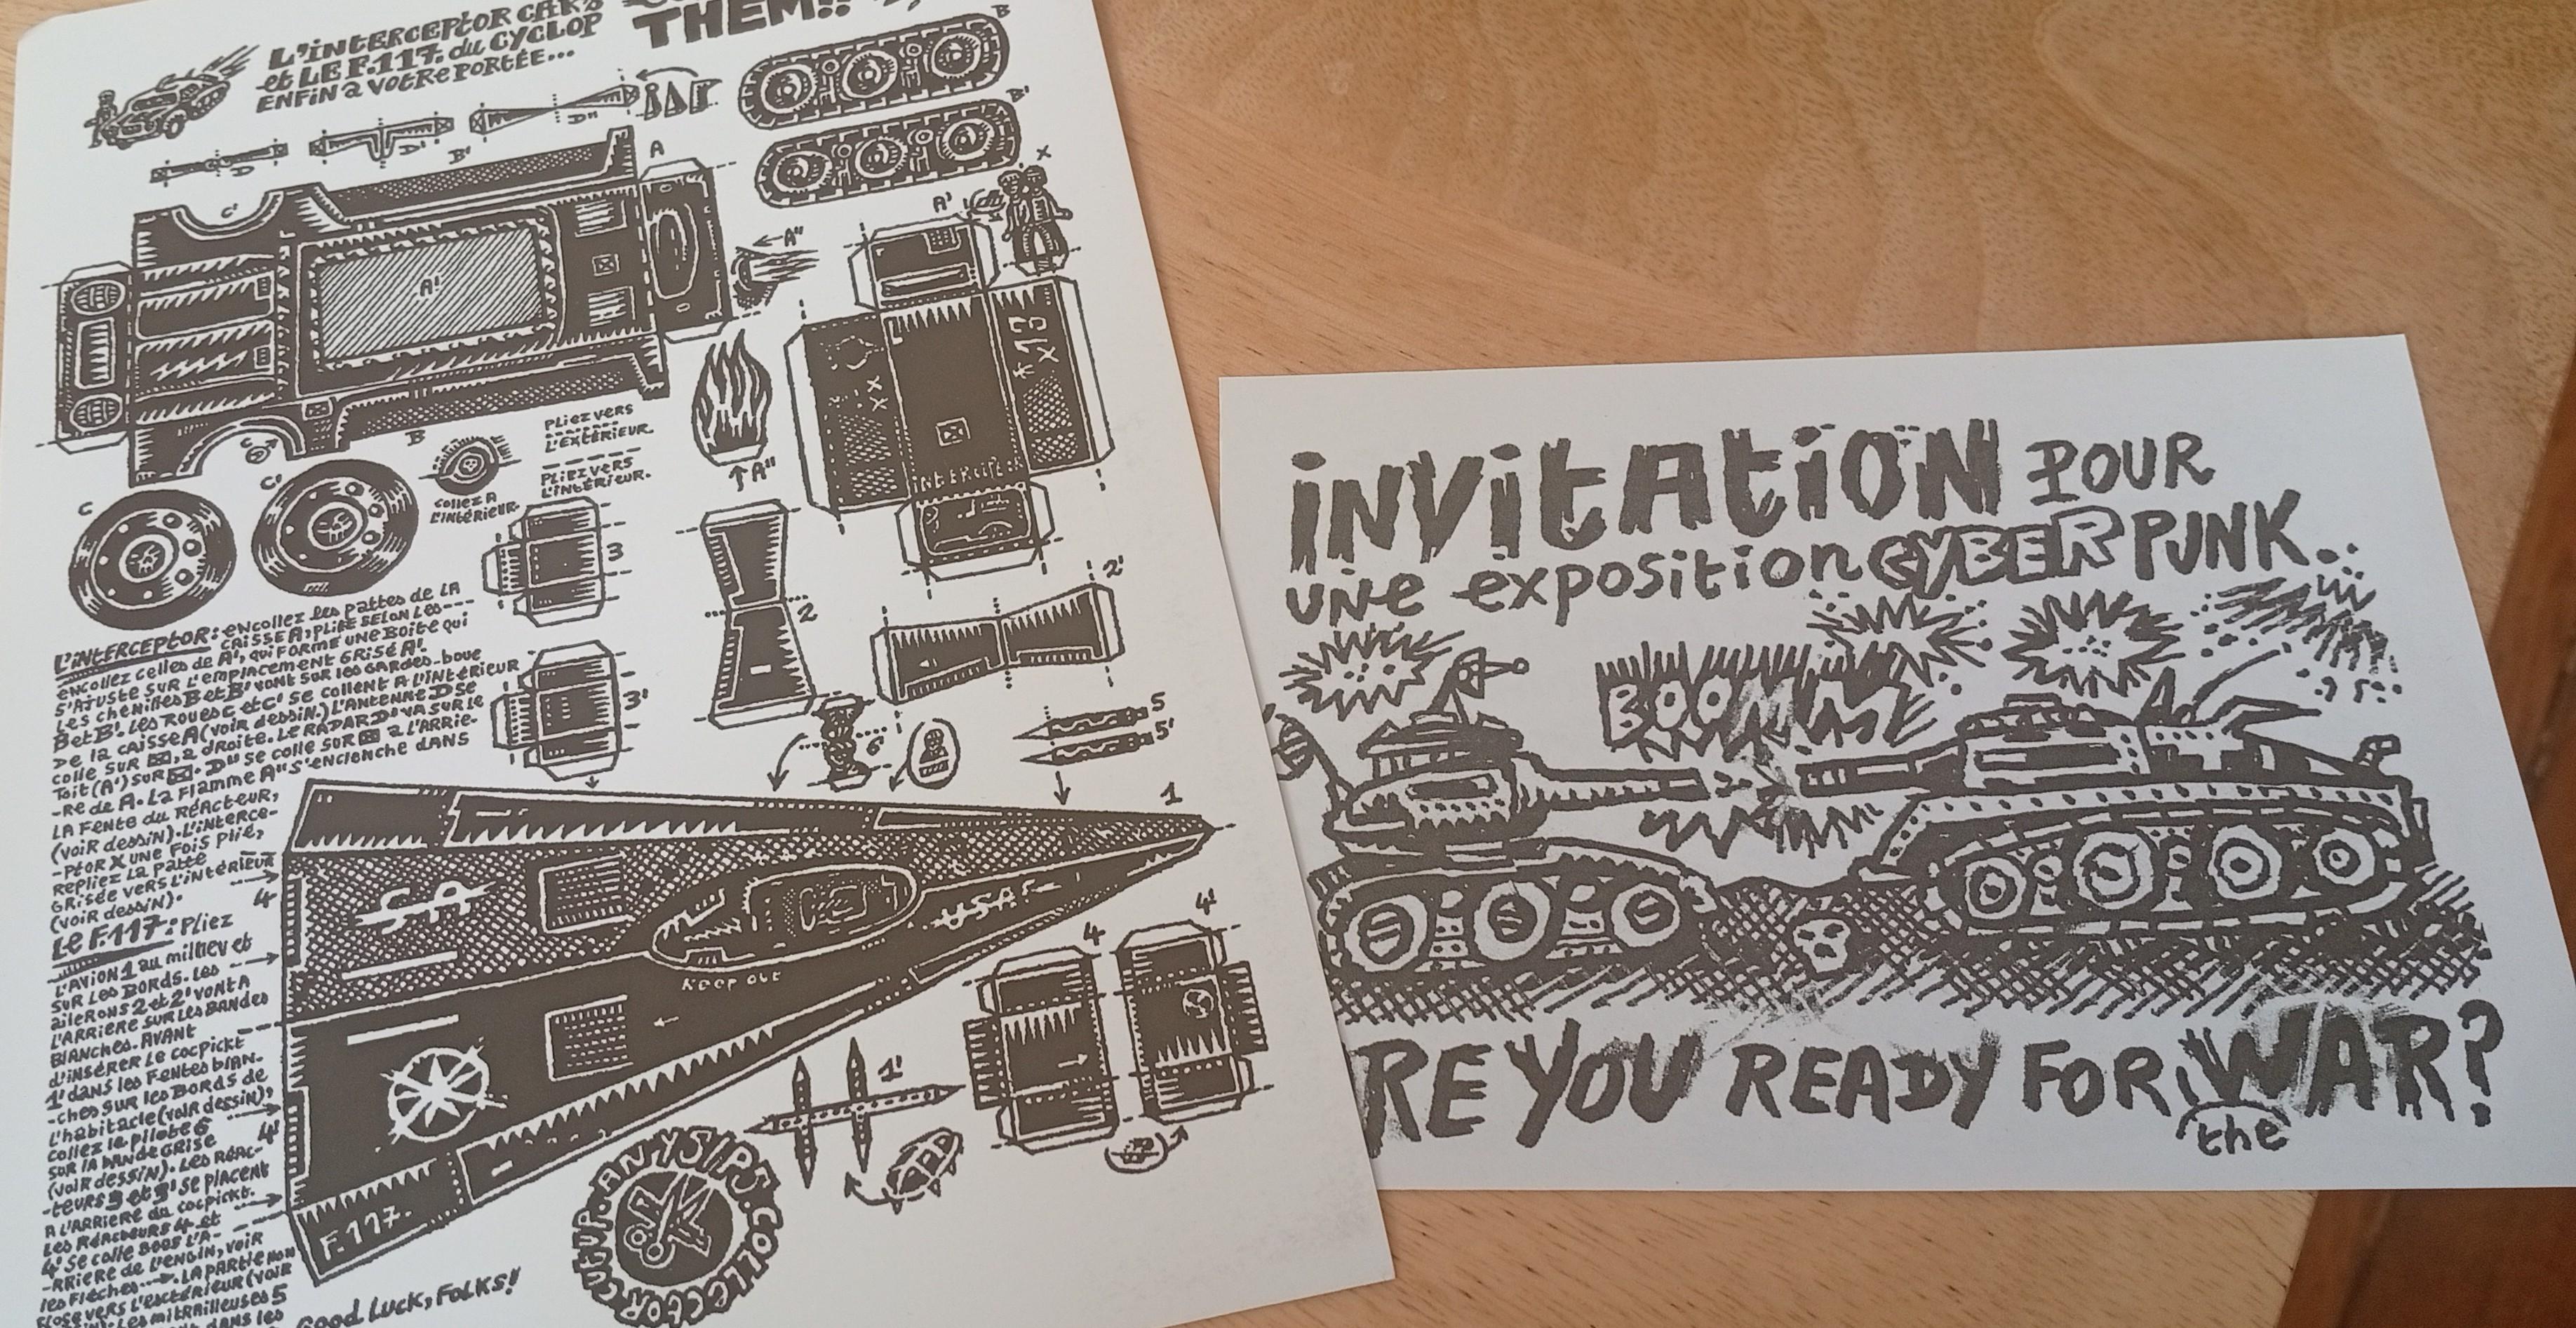 L'INTERCEPTOR CARS
et LE F.117. du CYCLOP
ENFIN a VOTRE PORTÉE...
THEM!!
B
B'
D
D'
D"
B'
A
X
C'
A'
A'
A"
B
C
PLIEZ VERS
L'EXTÉRIEUR.
PLIEZ VERS
L'INTÉRIEUR.
A"
XX
*X13
INTERCEPTOR
C
C'
COLLEZ A
L'INTÉRIEUR.
3
3'
2
2'
5
5'
6
L'INTERCEPTOR: ENCOLLEZ LES PATTES DE LA
CAISSE A, PLIEE SELON LES ---
ENCOLLEZ CELLES DE A', QUI FORME UNE BOITE QUI
S'AJUSTE SUR L'EMPLACEMENT GRISÉ A'.
LES CHENILLES B et B' VONT SUR LES GARDES-BOUE
B et B'. LES ROUES C et C' SE COLLENT A L'INTÉRIEUR
DE LA CAISSE A (VOIR DESSIN.) L'ANTENNE D SE
COLLE SUR ☒, a DROITE. LE RADAR D' VA SUR LE
TOIT (A') SUR ☒. D" SE COLLE SUR ☒ a L'ARRIE-
-RE DE A. LA FLAMME A" S'ENCLENCHE DANS
LA FENTE DU RÉACTEUR,
(VOIR DESSIN). L'INTERCE-
-PTOR X UNE FOIS PLIÉ,
REPLIEZ LA PATTE
GRISÉE VERS L'INTÉRIEUR
(VOIR DESSIN).
LE F.117: PLIEZ
L'AVION 1 au milieu et
SUR LES BORDS. LES
AILERONS 2 et 2' VONT A
L'ARRIERE SUR LES BANDES
BLANCHES. AVANT
D'INSÉRER LE COCPICKT
1' DANS LES FENTES BLAN-
-CHES SUR LES BORDS DE
L'HABITACLE (VOIR DESSIN),
COLLEZ LE PILOTE 6
SUR LA BANDE GRISE
(VOIR DESSIN). LES RÉAC-
-TEURS 3 et 3' SE PLACENT
A L'ARRIERE du COCPICKT.
LES RÉACTEURS 4 et
4' SE COLLE SOUS L'A-
-RRIERE DE L'ENGIN, VOIR
LES FLÈCHES ---→. LA PARTIE NON
VERS L'EXTÉRIEUR (VOIR
LES MITRAILLEUSES 5
DANS LES
1
4
4'
USAF
KEEP OUT
F.117.
1'
4
4'
CUTUP.ANYSIPS.COLLECTOR
GOOD LUCK, FOLKS!
INVITATION POUR
UNE exposition CYBER PUNK.
BOOM
RE YOU READY FOR WAR?
the